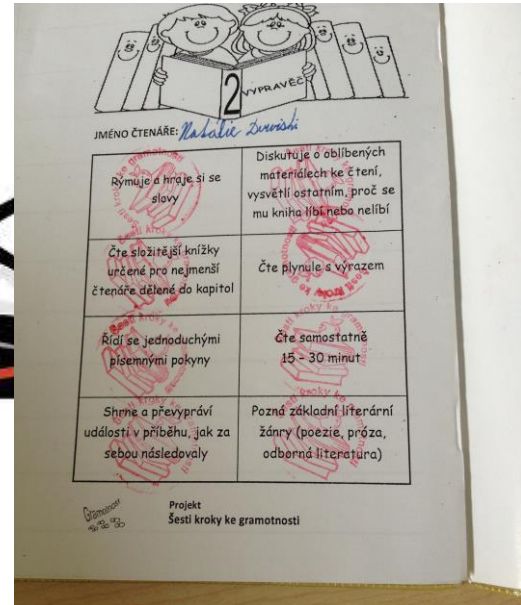 2
VYPRAVĚČ
JMÉNO ČTENÁŘE: Natálie Dervishi
Rýmuje a hraje si se
slovy
Diskutuje o oblíbených
materiálech ke čtení,
vysvětlí ostatním, proč se
mu kniha líbí nebo nelíbí
Čte složitější knížky
určené pro nejmenší
čtenáře dělené do kapitol
Čte plynule s výrazem
Řídí se jednoduchými
písemnými pokyny
Čte samostatně
15 - 30 minut
Shrne a převypráví
události v příběhu, jak za
sebou následovaly
Pozná základní literární
žánry (poezie, próza,
odborná literatura)
Gramotnost
Projekt
Šesti kroky ke gramotnosti